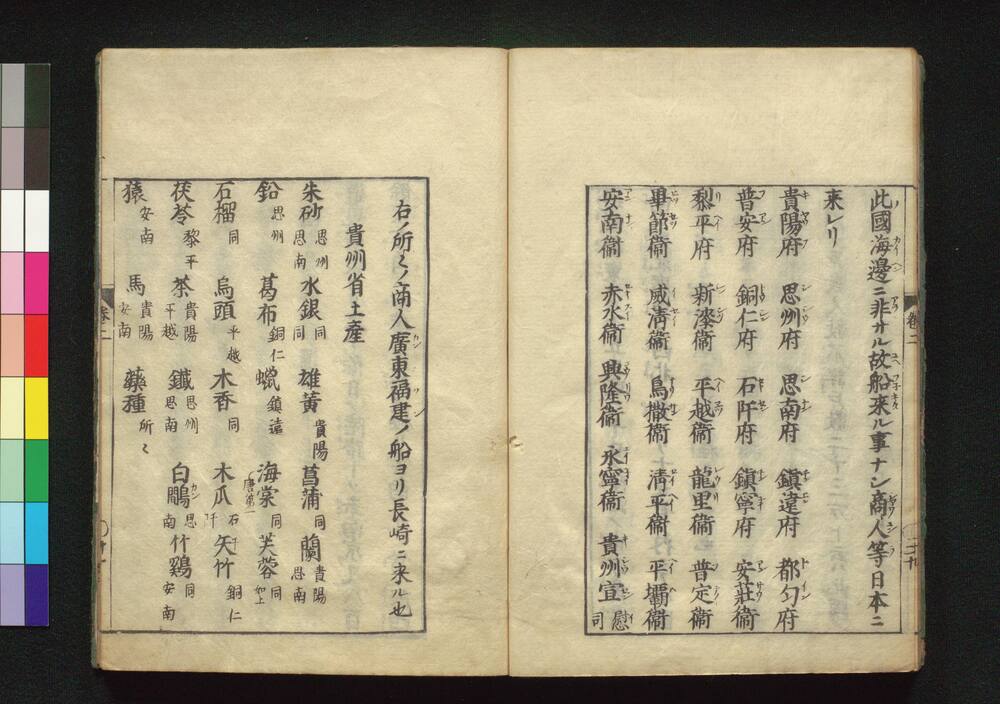 此國海邊ニ非サル故船来ル事ナシ商人等日本ニ
来レリ
貴陽府 思州府 思南府 鎮遠府 都匀府
普安府 銅仁府 石阡府 鎮寧府 安莊衞
黎平府 新添衞 平越衞 龍里衞 普定衞
畢節衞 威清衞 烏撒衞 清平衞 平壩衞
安南衞 赤水衞 興隆衞 永寧衞 貴州宣慰司
卷二
右ノ所々ノ商人廣東福建ノ船ヨリ長崎ニ来ル也
貴州省土産
朱砂 思州 思南 水銀 同 雄黄 貴陽 菖蒲 同 蘭 貴陽 思南
鉛 思州 葛布 銅仁 蠟 鎮遠 海棠 同 芙蓉 同 如上
石榴 同 烏頭 平越 木香 同 木瓜 石阡 矢竹 銅仁
茯苓 黎平 茶 貴陽 平越 鐵 思州 思南 白鷴 思南 竹鷄 同 安南
猿 安南 馬 貴陽 安南 藥種 所々
卷二